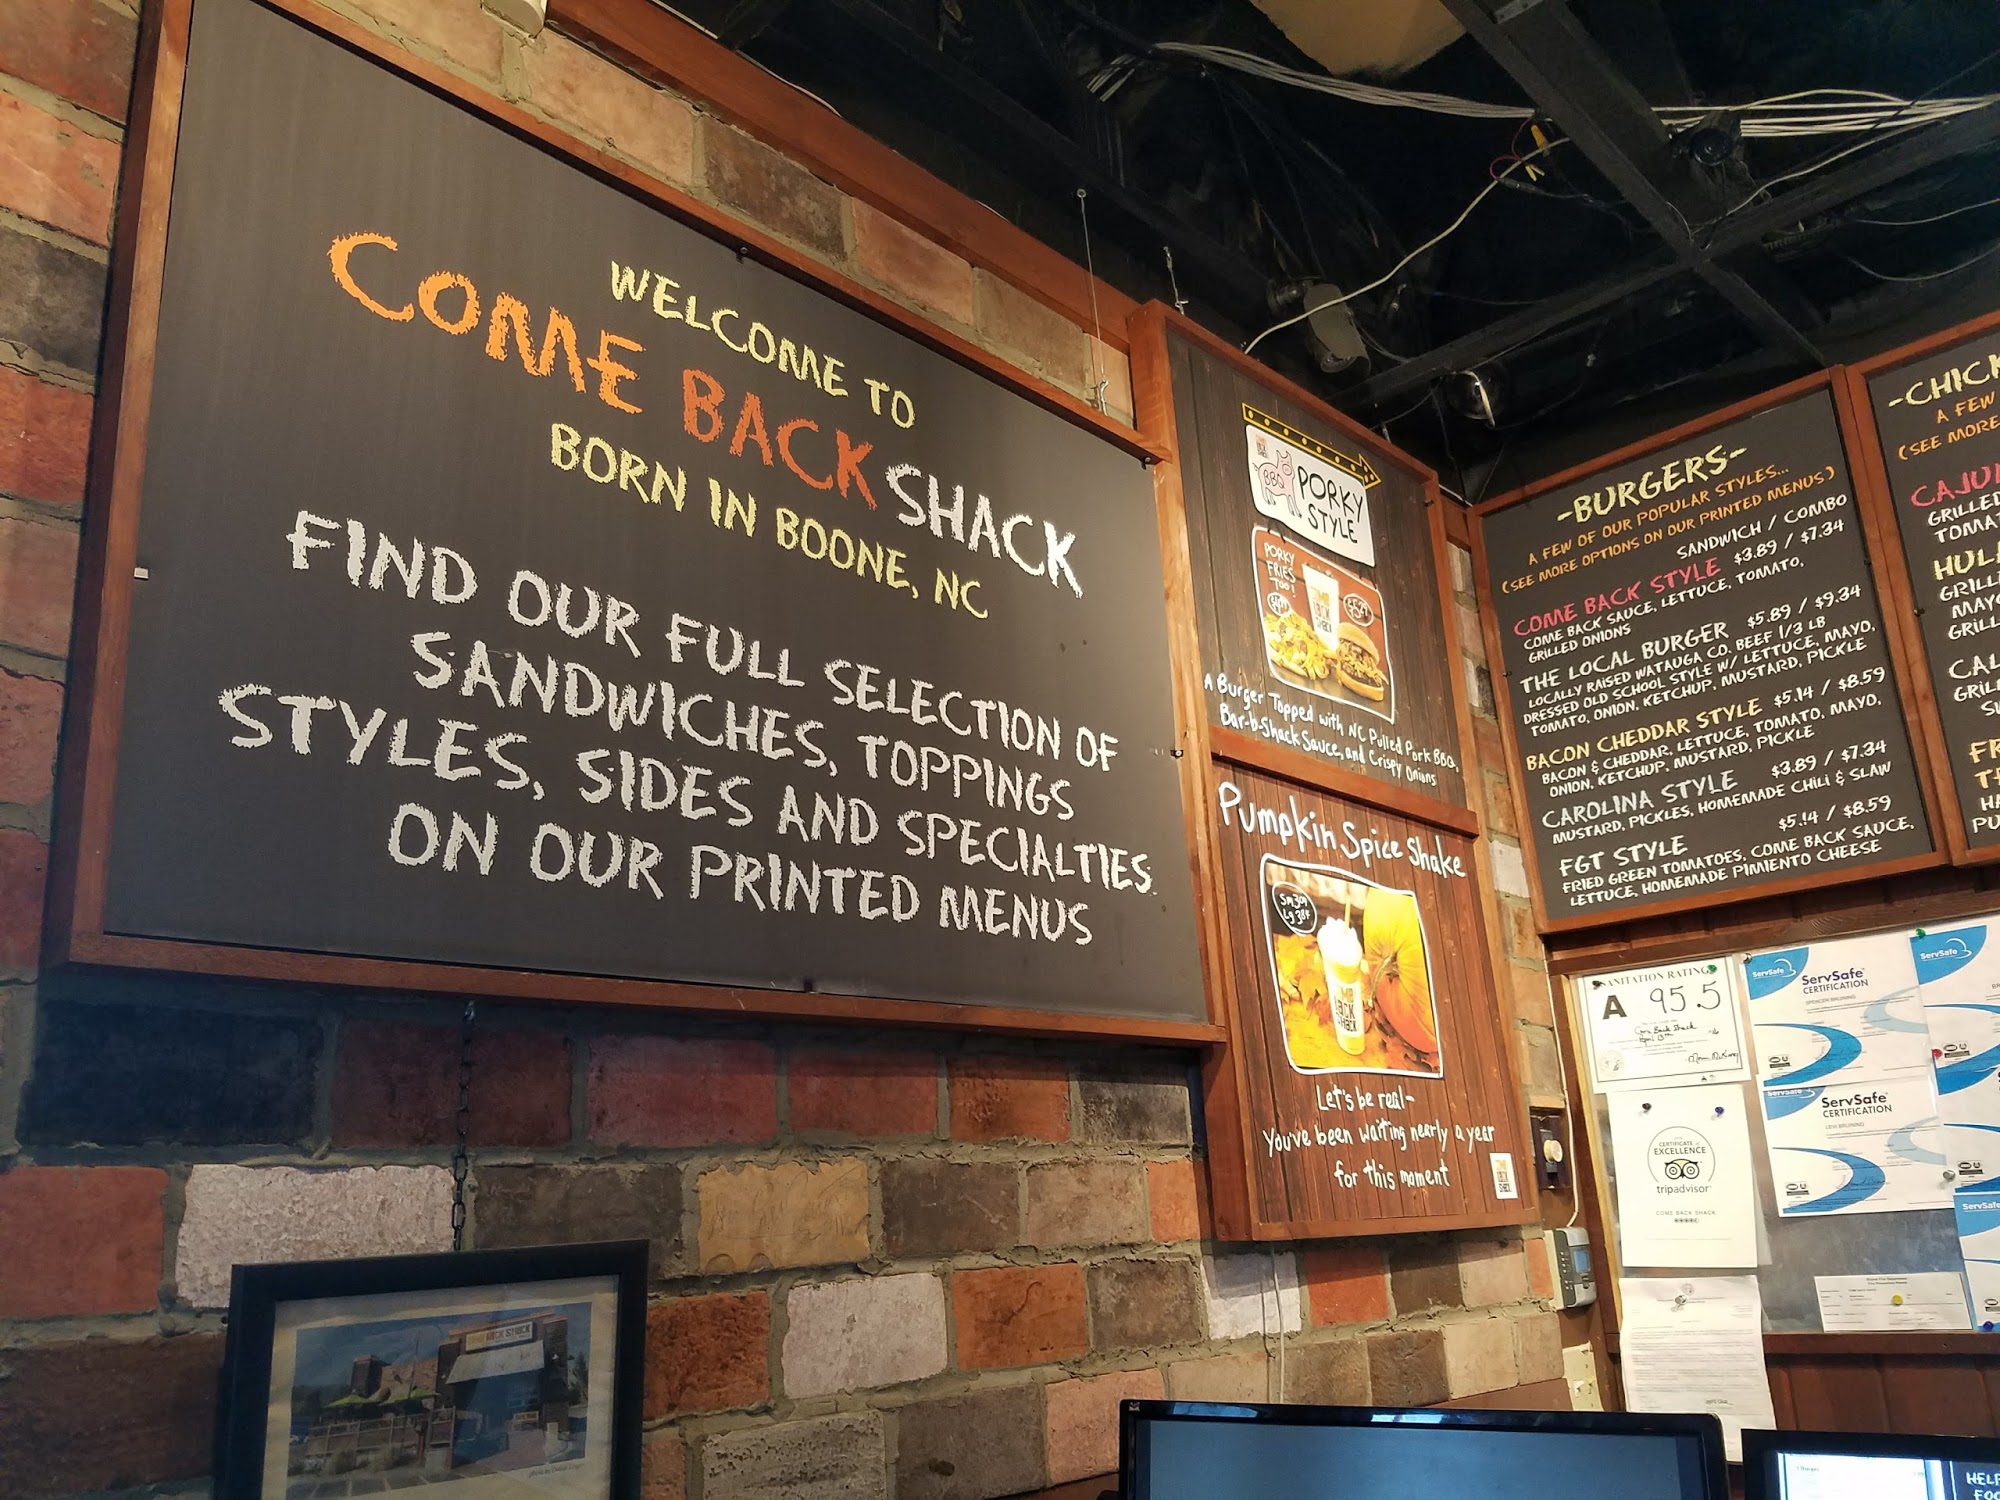 WELCOME TO
COME BACK SHACK
BORN IN BOONE, NC
FIND OUR FULL SELECTION OF
SANDWICHES, TOPPINGS
STYLES, SIDES AND SPECIALTIES
ON OUR PRINTED MENUS
BBQ
PORKY
STYLE
PORKY
FRIES
TOO!
A Burger Topped with NC Pulled Pork BBQ,
Bar-b-Shack Sauce, and Crispy Onions
Pumpkin Spice Shake
Let's be real-
You've been waiting nearly a year
for this moment
-BURGERS-
A FEW OF OUR POPULAR STYLES...
(SEE MORE OPTIONS ON OUR PRINTED MENUS)
SANDWICH / COMBO
COME BACK STYLE $3.89 / $7.34
COME BACK SAUCE, LETTUCE, TOMATO,
GRILLED ONIONS
THE LOCAL BURGER $5.89 / $9.34
LOCALLY RAISED WATAUGA CO. BEEF 1/3 LB
DRESSED OLD SCHOOL STYLE W/ LETTUCE, MAYO,
TOMATO, ONION, KETCHUP, MUSTARD, PICKLE
BACON CHEDDAR STYLE $5.14 / $8.59
BACON & CHEDDAR, LETTUCE, TOMATO, MAYO,
ONION, KETCHUP, MUSTARD, PICKLE
CAROLINA STYLE $3.89 / $7.34
MUSTARD, PICKLES, HOMEMADE CHILI & SLAW
FGT STYLE $5.14 / $8.59
FRIED GREEN TOMATOES, COME BACK SAUCE,
LETTUCE, HOMEMADE PIMIENTO CHEESE
-CHICK
A FEW
(SEE MORE
CAJUN
GRILLED
TOMAT
GRILL
MAYO
GRILL
SANITATION RATING
A 95.5
Come Back Shack
ServSafe
ServSafe
CERTIFICATION
SPENCER BRUNING
ServSafe
ServSafe
ServSafe
CERTIFICATION
LEVI BRUNING
ServSafe
CERTIFICATE of
EXCELLENCE
tripadvisor
COME BACK SHACK
HELP
FOO